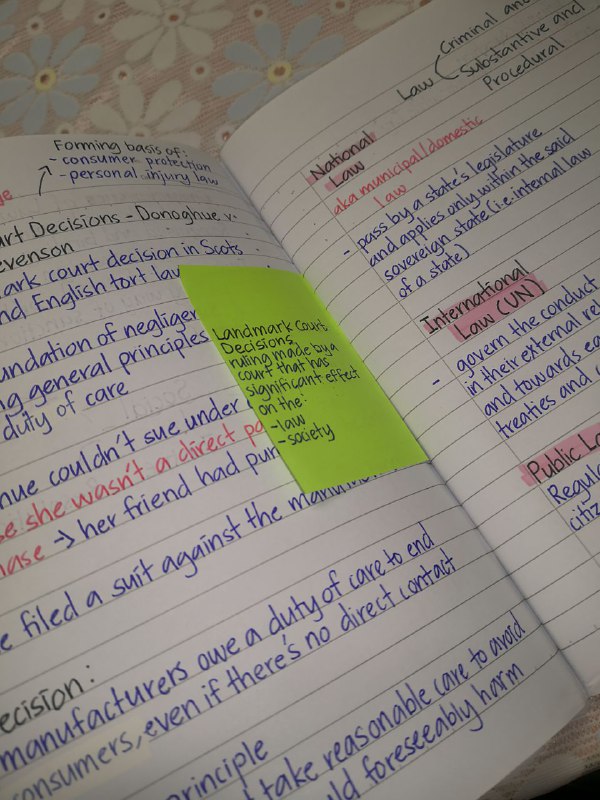 Forming basis of:
- consumer protection
- personal injury law
Decisions - Donoghue v.
mark court decision in Scots
and English tort law
foundation of neglige
general principles
duty of care
couldn't sue under
she wasn't a direct
→ her friend had pur
filed a suit against the
Decision:
manufacturers owe a duty of care to end
consumers, even if there's no direct contact
principle
take reasonable care to avoid
foreseeably harm
Landmark Court
Decisions
ruling made by a
court that has
significant effect
on the:
- law
- society
Law
Criminal and
Substantive and
Procedural
National
Law
aka municipal/domestic
law
- pass by a state's legislature
and applies only within the said
sovereign state (i.e. internal law
of a state)
International
Law (UN)
- govern the conduct
in their external
and towards
treaties and
Public